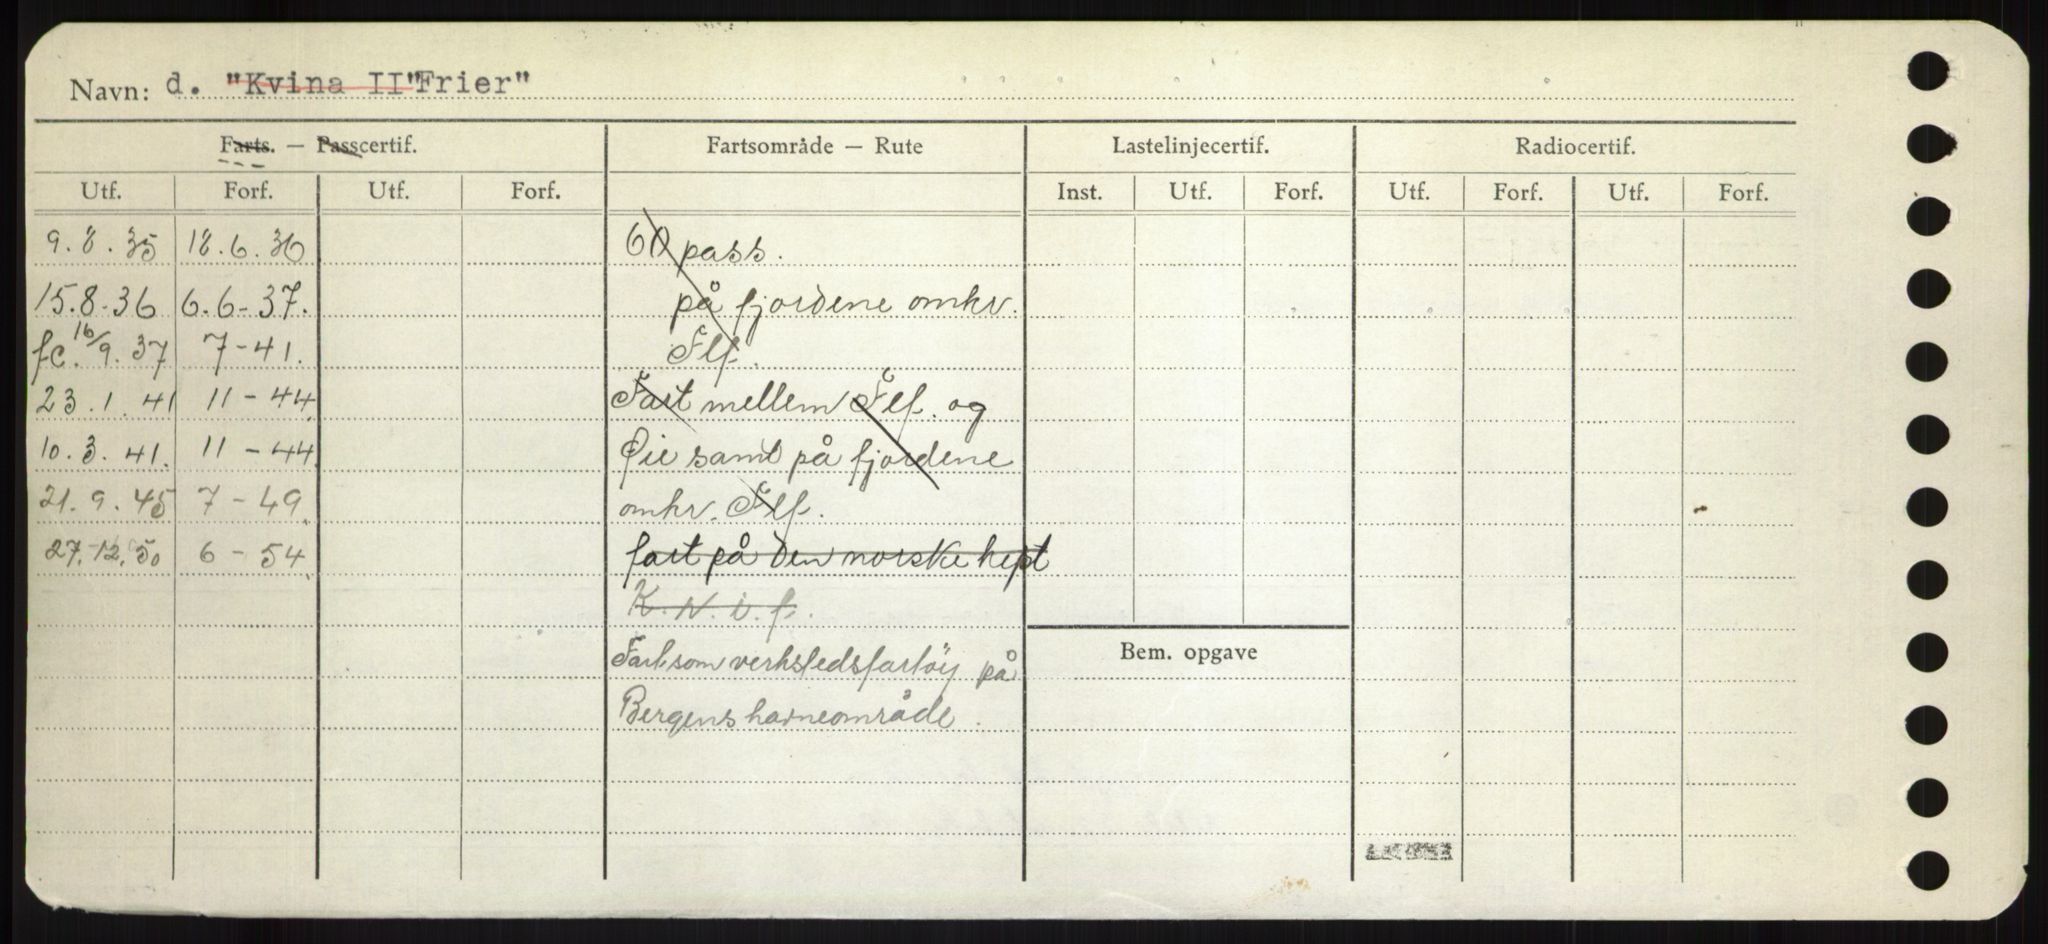 Navn: d. "Kvina II" "Frier"
Farts. — Passcertif. Fartsområde — Rute Lastelinjecertif. Radiocertif.
Utf. Forf. Utf. Forf. Inst. Utf. Forf. Utf. Forf. Utf. Forf.
9.8.35 18.6.36 60 pass.
15.8-36 6.6-37. på fjordene omkr.
fc. 16/9.37 7-41. Flf.
23.1.41 11-44. Fart mellem Flf. og
10.3.41. 11-44. Øie samt på fjordene
21.9.45 7-49. omkr. Flf.
27.12.50 6-54 fart på den norske kyst
K.N.i.f.
Fart som verkstedsfartøy på
Bem. opgave
Bergens havneområde.